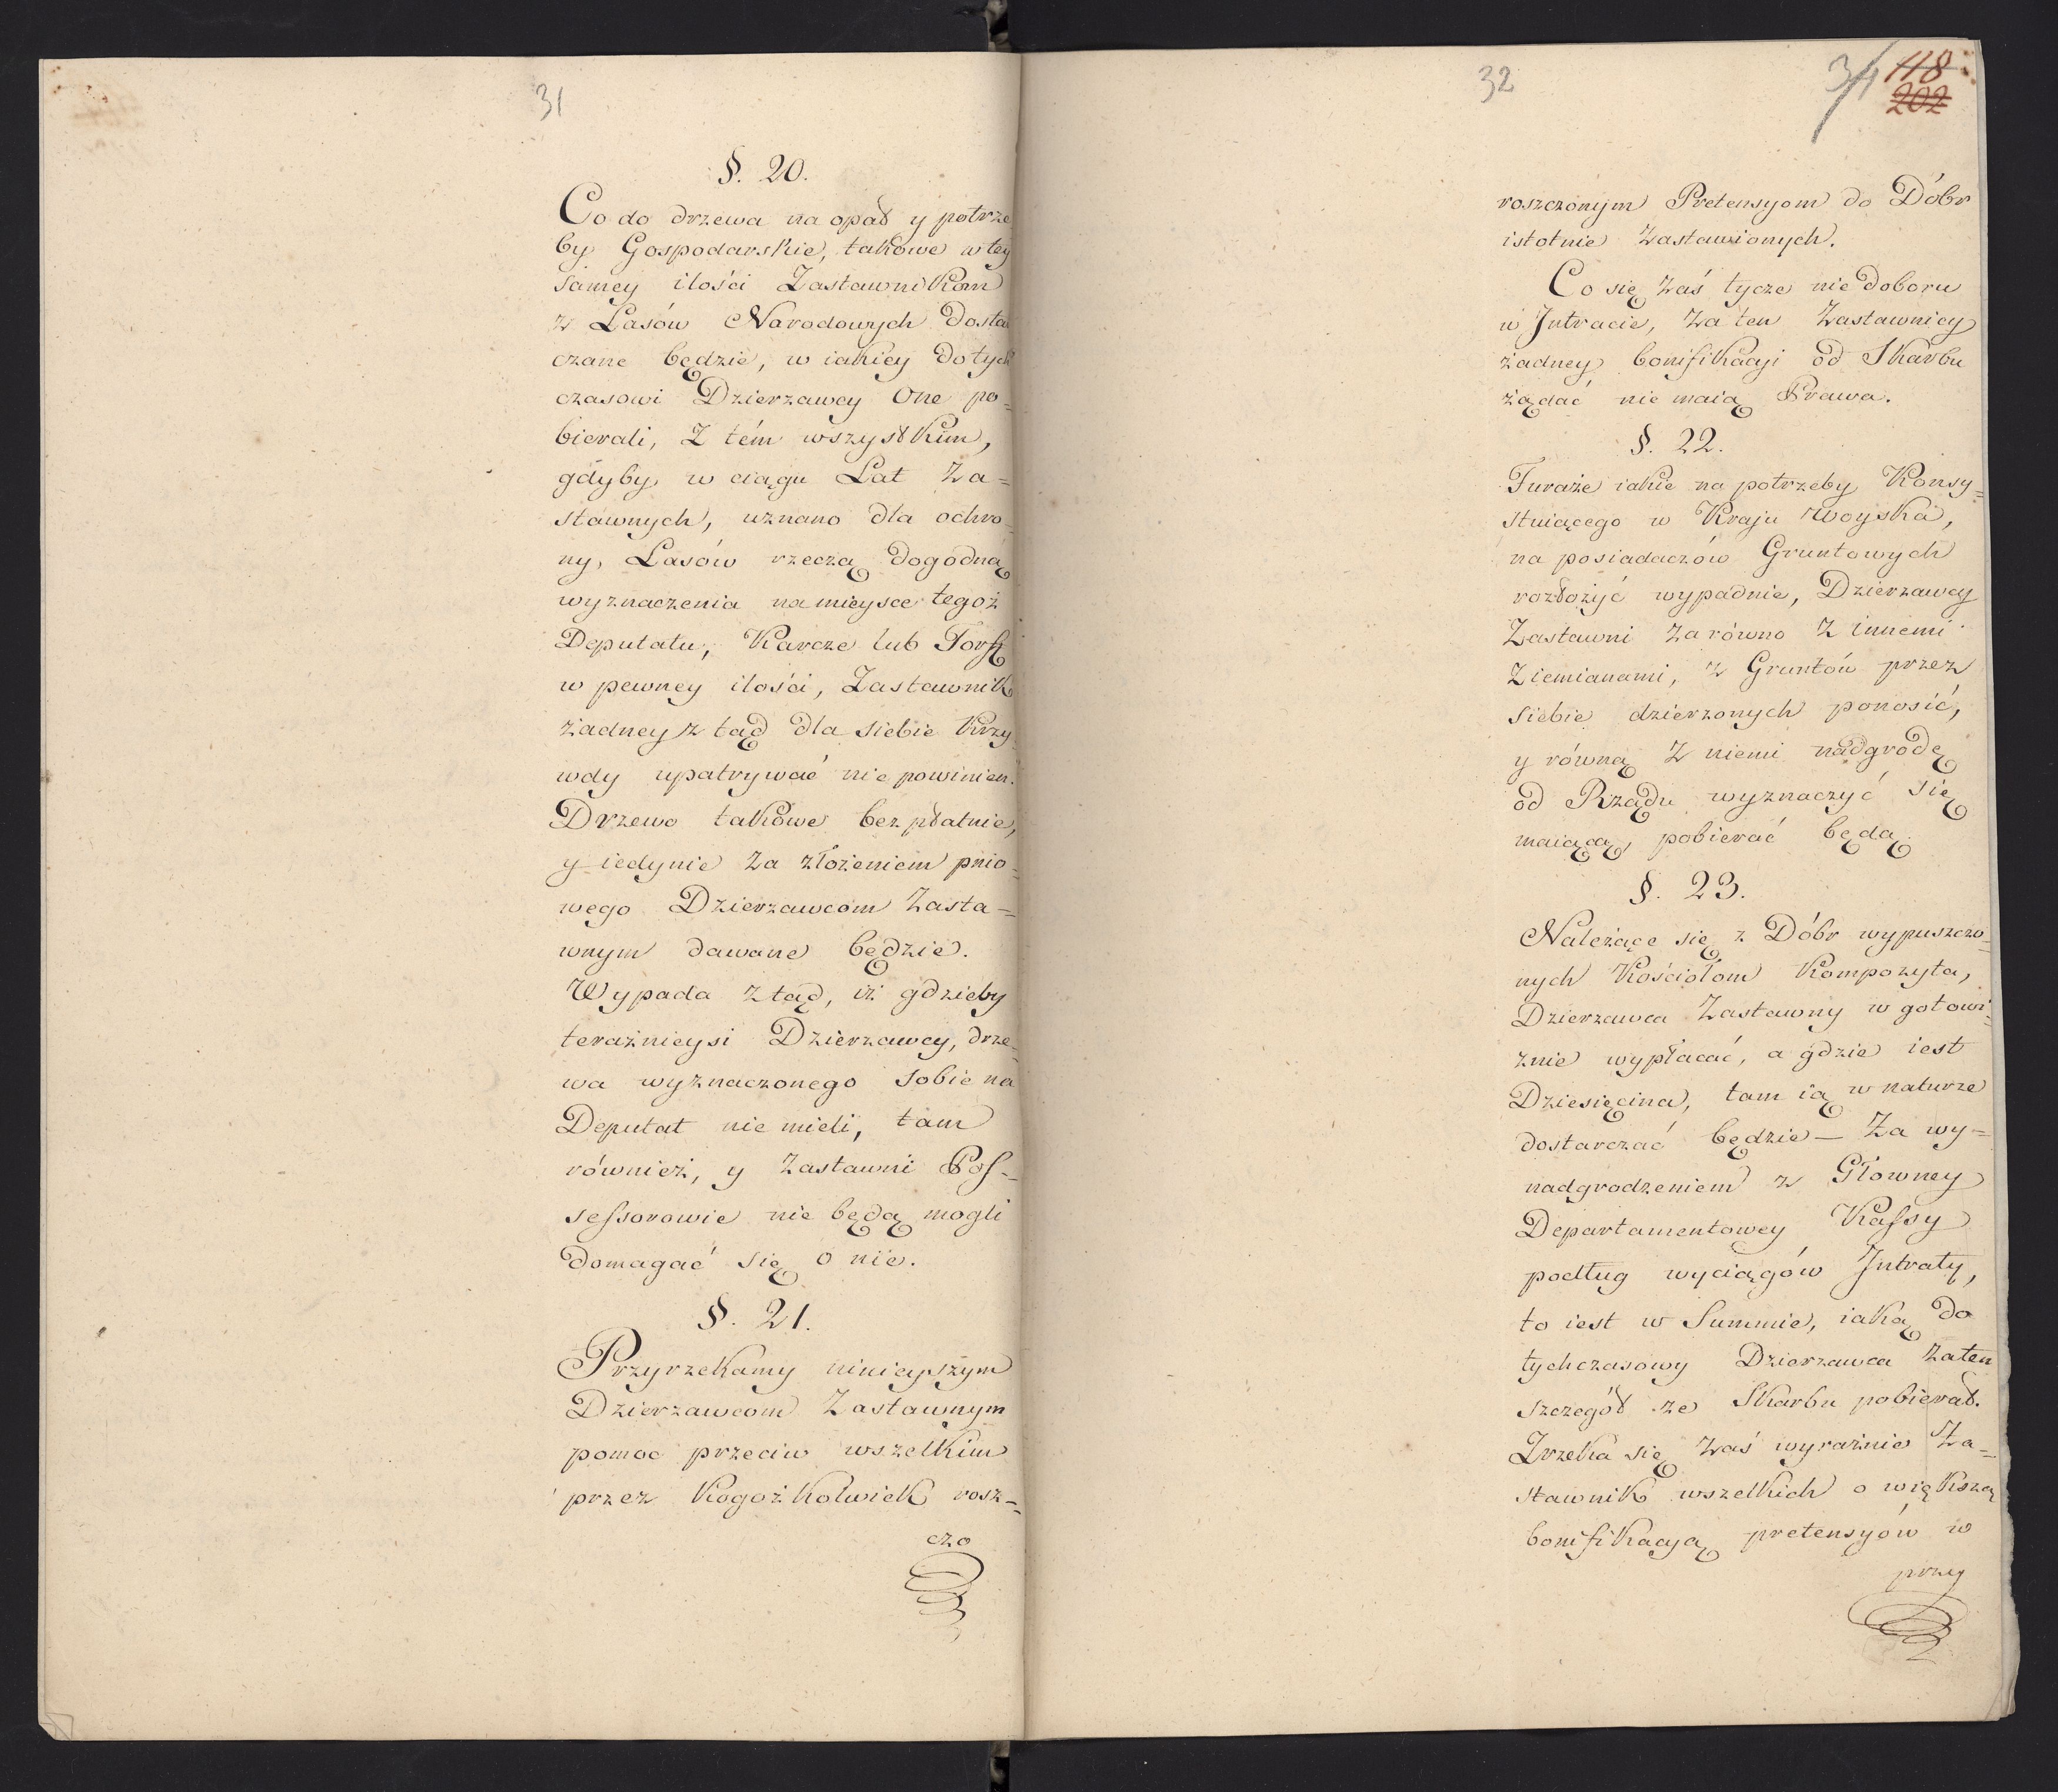 31
§. 20.
Co do drzewa na opał y potrze
by Gospodarskie, takowe w tey
samey ilości Zastawnikom
z Lasów Narodowych dosta
czane będzie, w iakiey dotych
czasowi Dzierzawcy One po=
bierali, Z tém wszystkim,
gdyby w ciągu Lat Za=
stawnych, uznano dla ochro
ny, Lasów rzeczą dogodną
wyznaczenia na mieysce tegoż
Deputatu, Karcze lub Torff
w pewney ilości, Zastawnik
żadney z tąd dla siebie Krzy=
wdy upatrywać nie powinien.
Drzewo takowe bezpłatnie,
y iedynie za złożeniem pnio=
wego Dzierzawcom Zasta=
wnym dawane będzie.
Wypada ztąd, iż gdzieby
teraźnieysi Dzierzawcy, drze=
wa wyznaczonego sobie na
Deputat nie mieli, tam
również, y Zastawni Pos=
sessorowie nie będą mogli
domagać się o nie.
§. 21.
Przyrzekamy ninieyszym
Dzierzawcom Zastawnym
pomoc przeciw wszelkim
przez kogożkolwiek rosz=
czo
32
34 118
202
roszczonym Pretensyom do Dóbr
istotnie Zastawionych.
Co się zaś tycze niedoboru
w Jntracie, za ten Zastawnicy
żadney bonifikacyi od Skarbu
żądać nie maią Prawa.
§. 22.
Furaże iakie na potrzeby Konsy=
stuiącego w Kraju Woyska,
na posiadaczów Gruntowych
rozłożyć wypadnie, Dzierzawcy
Zastawni zarówno z innemi
Ziemianami, z Gruntów przez
siebie dzierzonych ponosić,
y równą z niemi nadgrodę
od Rządu wyznaczyć się
maiącą, pobierać będą.
§. 23.
Należące się z Dóbr wypuszczo=
nych Kościołom Kompozyta,
Dzierzawca Zastawny w gotowi=
znie wypłacać, a gdzie iest
Dziesięcina, tam ią w naturze
dostarczać będzie — Za wy=
nadgrodzeniem z Głowney
Departamentowey Kassy
podług wyciągów Jntraty,
to iest w Summie, iaką do
tychczasowy Dzierzawca za ten
szczegół ze Skarbu pobierał.
Zrzeka się zaś wyraźnie Za=
stawnik wszelkich o większą
bonifikacyą pretensyów w
przy